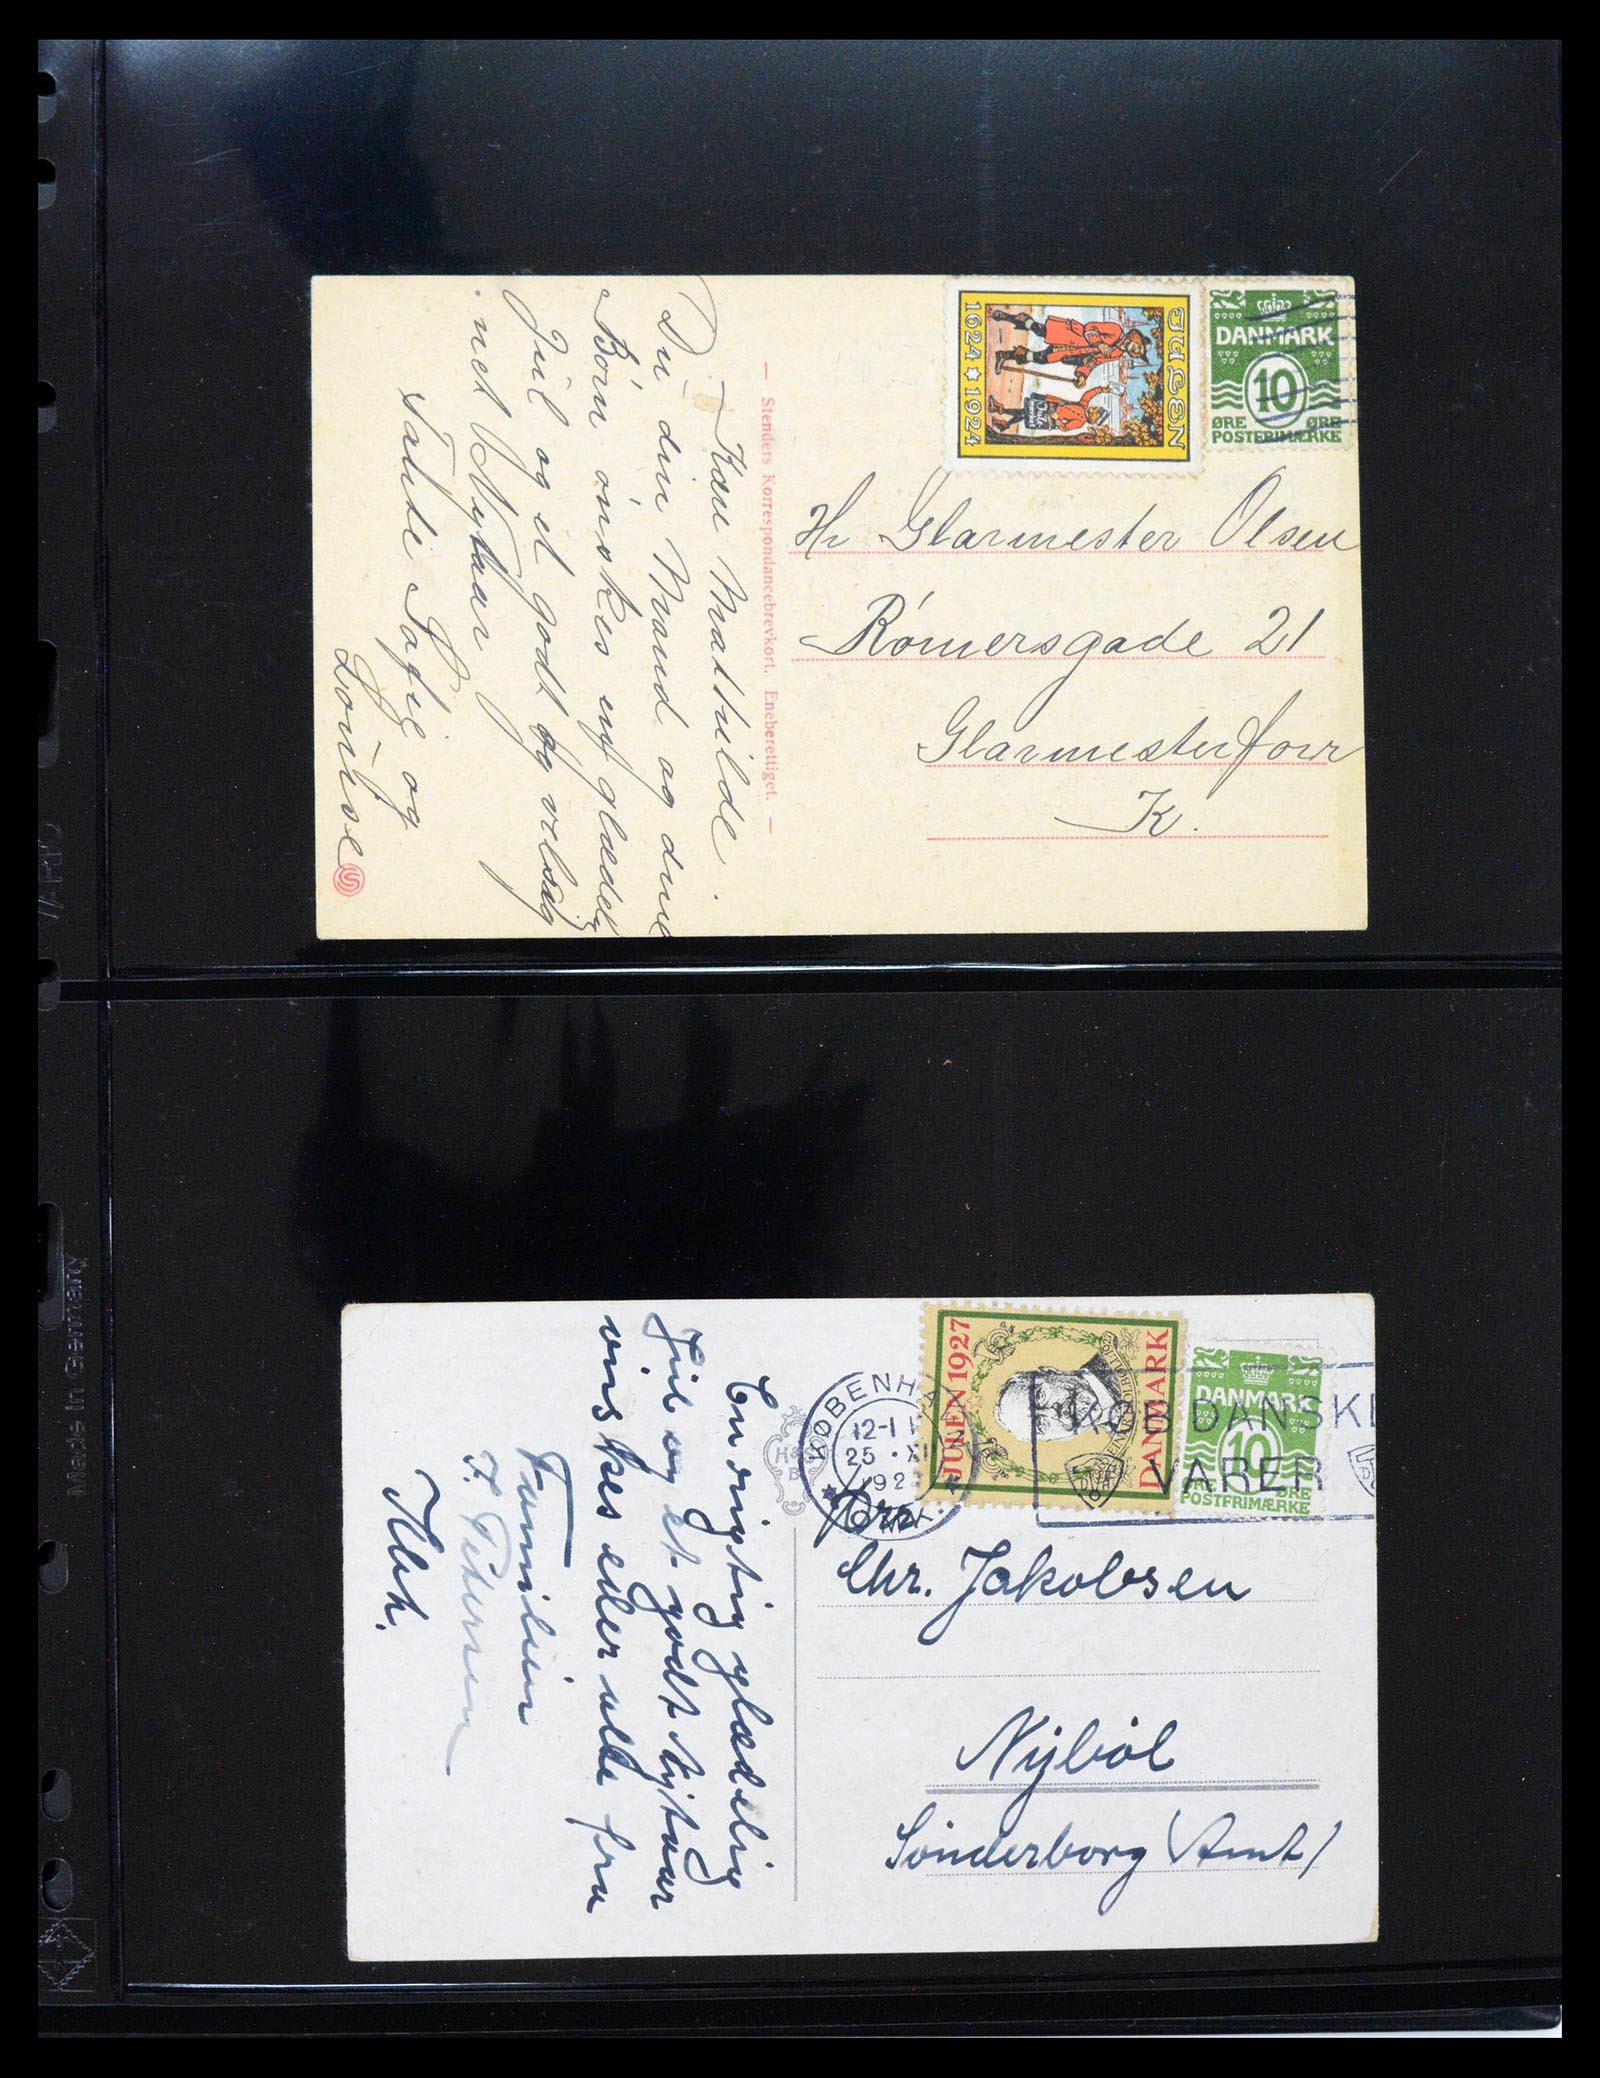 JULEN
1624 ★ 1924
DANMARK
10
ØRE ØRE
POSTFRIMÆRKE
Hr Glarmester Olsen
Rómersgade 21
Glarmesterforr
K.
— Stenders Korrespondancebrevkort. Eneberettiget. —
Kære Mathilde.
Du din Mand og dine
Börn önskes en glædelig
Jul og et godt og velsig
net Nytaar
Sofie og
Lovise
JULEN 1927
EINAR HOLBÖLL
DANMARK
DANMARK
10
ØRE ØRE
POSTFRIMÆRKE
KØBENHAVN
12-1
25 · XII
192
KØB DANSKE
VARER
H&S
B
Chr. Jakobsen
Nybøl
Sönderborg Amt
En rigtig glædelig
Jul og et godt Nytaar
ønskes eder alle fra
Familien
F. Petersen
Kbh.
VARIO
Made in Germany